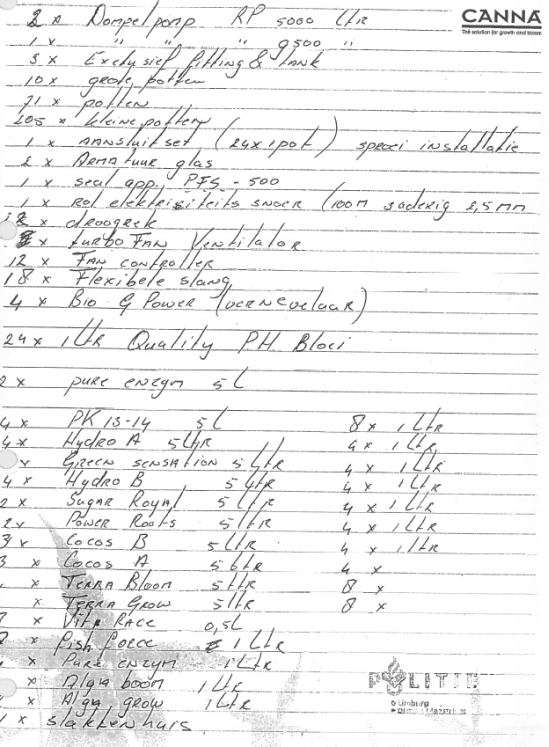 CANNA
The solution for growth and bloom
2 x Dompelpomp RP 5000 Ltr
1 x " " " 9500 "
3 x Exclusief fitting & tank
10 x grote potten
71 x potten
205 x kleine potten
1 x AANSluit set (24x 1pot) sproei installatie
2 x ARMAtuur glas
1 x seal app, PFS - 500
1 x Rol elektrisiteits snoer (100m 3aderig 2,5mm
12 x droogrek
x turbo FAN Ventilator
12 x FAN controller
18 x Flexibele slang
4 x Bio G Power (vernevelaar)
24 x 1 Ltr Quality PH Bloei
2 x pure enzym 5L
4 x PK 13-14 5L 8 x 1 Ltr
4 x Hydro A 5 Ltr 4 x 1 Ltr
x Green sensation 5 Ltr 4 x 1 Ltr
4 x Hydro B 5 Ltr 4 x 1 Ltr
2 x Sugar Royal 5 Ltr 4 x 1 Ltr
2 x Power Roots 5 Ltr 4 x 1 Ltr
3 x Cocos B 5 Ltr 4 x 1 Ltr
3 x Cocos A 5 Ltr 4 x
x Terra Bloom 5 Ltr 8 x
x Terra Grow 5 Ltr 8 x
x Vita Race 0,5L
x fish force 1 Ltr
x Pure enzym 1 Ltr
x Alga boom 1 Ltr
x Alga grow 1 Ltr
1 x slakkenhuis
POLITIE
Limburg